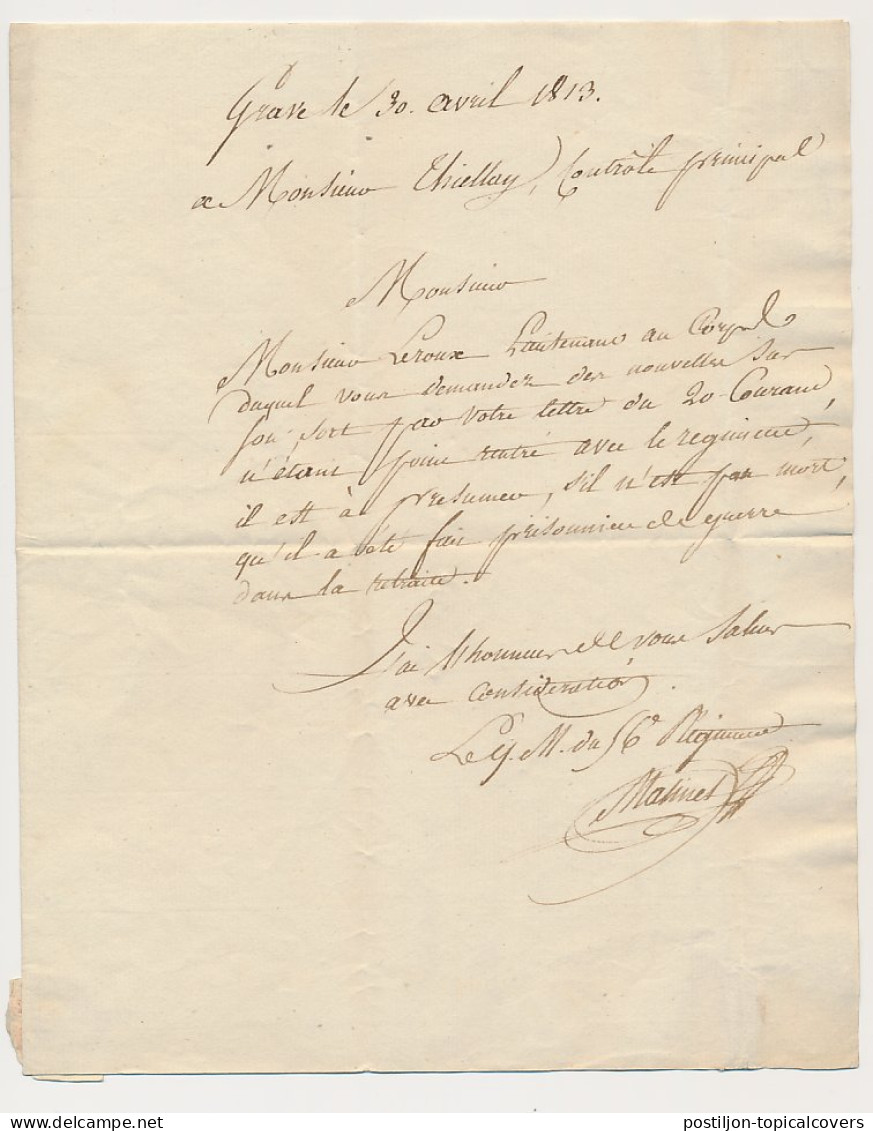 Grave le 30. avril 1813.
a Monsieur Thiellay, Contrôle principal
Monsieur
Monsieur Leroux Lieutenant au Corps
duquel vous demandez des nouvelles sur
son sort par votre lettre du 20 Courant,
n'étant point rentré avec le regiment,
il est à presumer, s'il n'est pas mort,
qu'il a été fait prisonnier de guerre
dans la retraite.
J'ai l'honneur de vous saluer
avec consideration.
Le Q. M. du 56e Regiment
Matinet
postiljon-topicalcovers